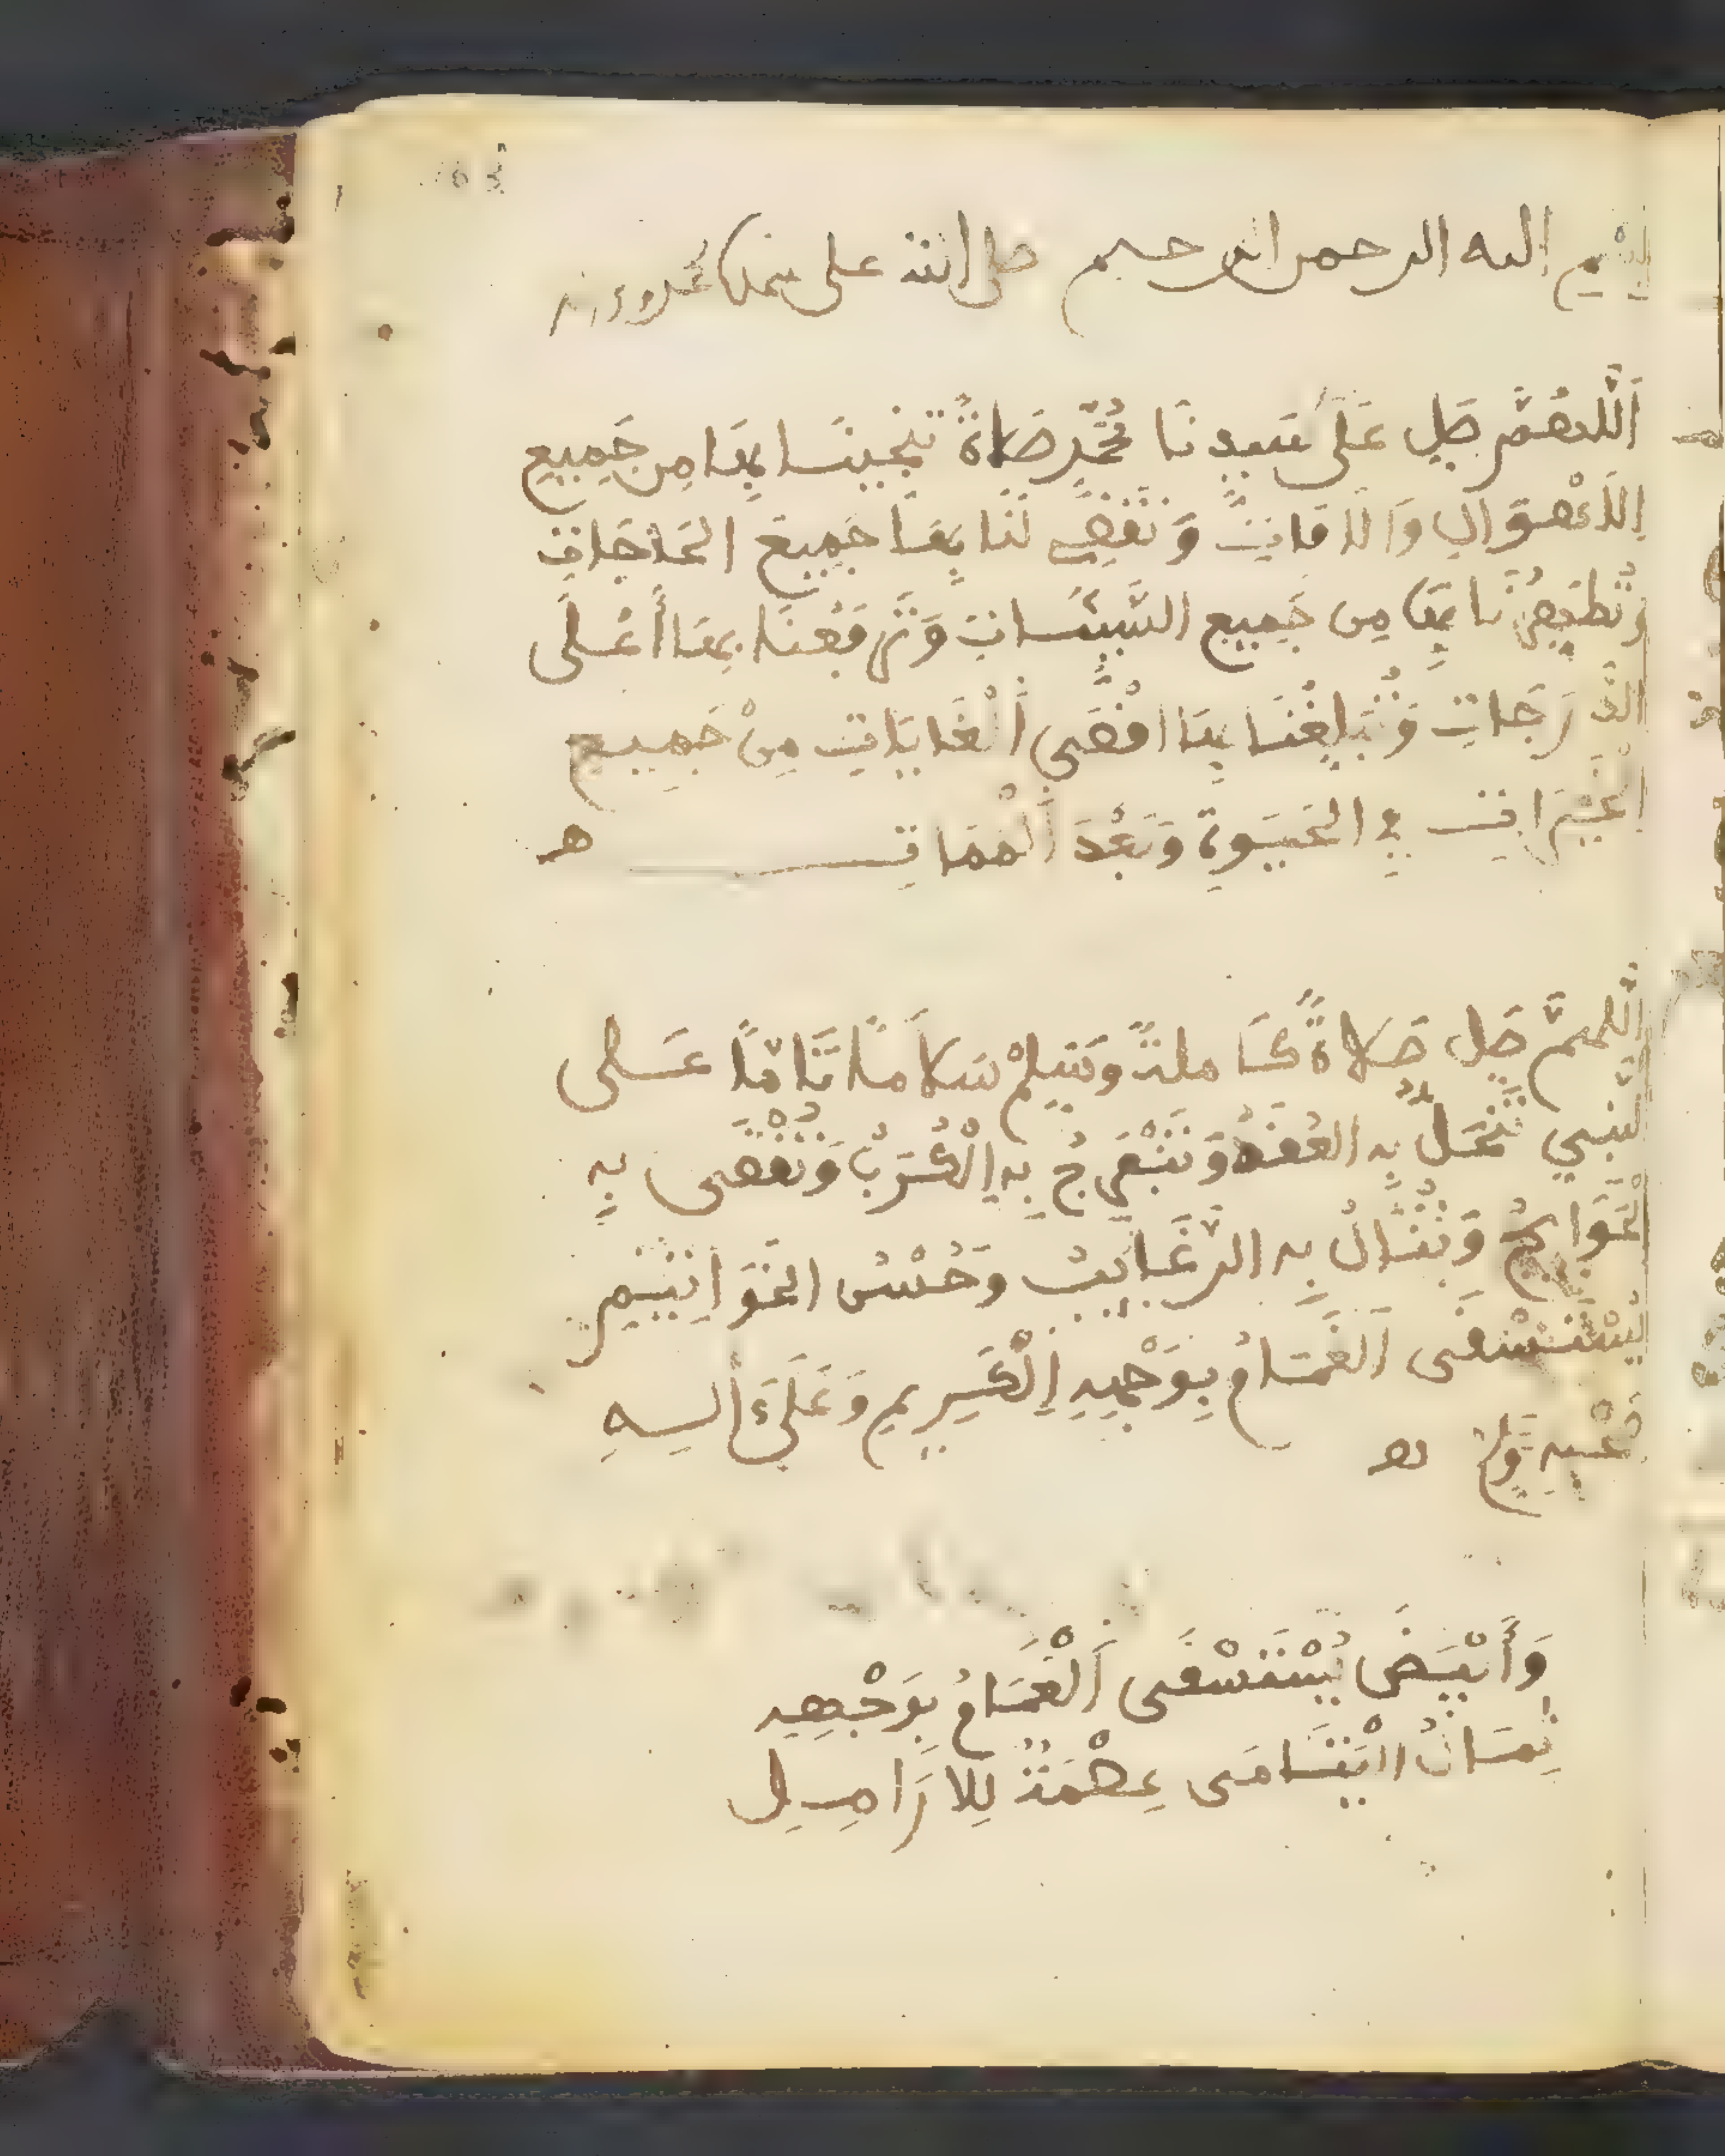 بسم الله الرحمن الرحيم صلى الله على سيدنا محمد وءاله
اَللَّهُمَّ صَلِّ عَلَى سَيِّدِنَا مُحَمَّدٍ صَلَاةً تُنْجِينَا بِهَا مِن جَمِيعِ
اِلَاهْوَالِ وَالَافَاتِ وَتَقْضِي لَنَا بِهَا جَمِيعَ الحَاجَاتِ
وَتُطَهِّرُنَا بِهَا مِن جَمِيعِ السَّيِّئَاتِ وَتَرْفَعُنَا بِهَا أَعْلَى
الدَّرَجَاتِ وَتُبَلِّغُنَا بِهَا اقْصَى اَلْغَايَاتِ مِنْ جَمِيعِ
الخَيْرَاتِ فِي الحَيَوةِ وَبَعْدَ اَلْمَمَاتِ ه
اللهمَّ صَلِّ صَلَاةً كَامِلةً وَسَلِّمْ سَلَاماً تَامّاً عَلَى
النَّبِي تَنْحَلُّ بِهِ العُقَدُ وَتَنْفَرِجُ بِهِ اِلْكُرَبُ وَتُقْضَى بِهِ
الْحَوَايِجُ وَتُنَالُ بِهِ الرَّغَايِبُ وَحُسْنُ الخَوَاتِيمِ
يُسْتَسْقَى اَلْغَمَامُ بِوَجْهِهِ اِلْكَرِيمِ وَعَلَى ءَالِهِ
وَصَحْبِهِ
وَأَبْيَضَ يُسْتَسْقَى اَلْغَمَامُ بِوَجْهِهِ
ثِمَالُ الْيَتَامَى عِصْمَةٌ لِلَارَامِلِ